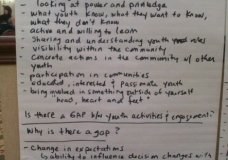 - looking at power and privledge
- what youth know, what they want to know,
what they don't know
- active and willing to learn
- Sharing and understanding youth roles
- visibility within the community
- Concrete actions in the community w/ other
youth
- participation in communities
- educated, interested & passionate youth
- being involved in something outside of yourself
"head, heart and feet"
Is there a GAP b/w youth activities & engagement?
Why is there a gap?
- Change in expectations
↳ ability to influence decision changes with